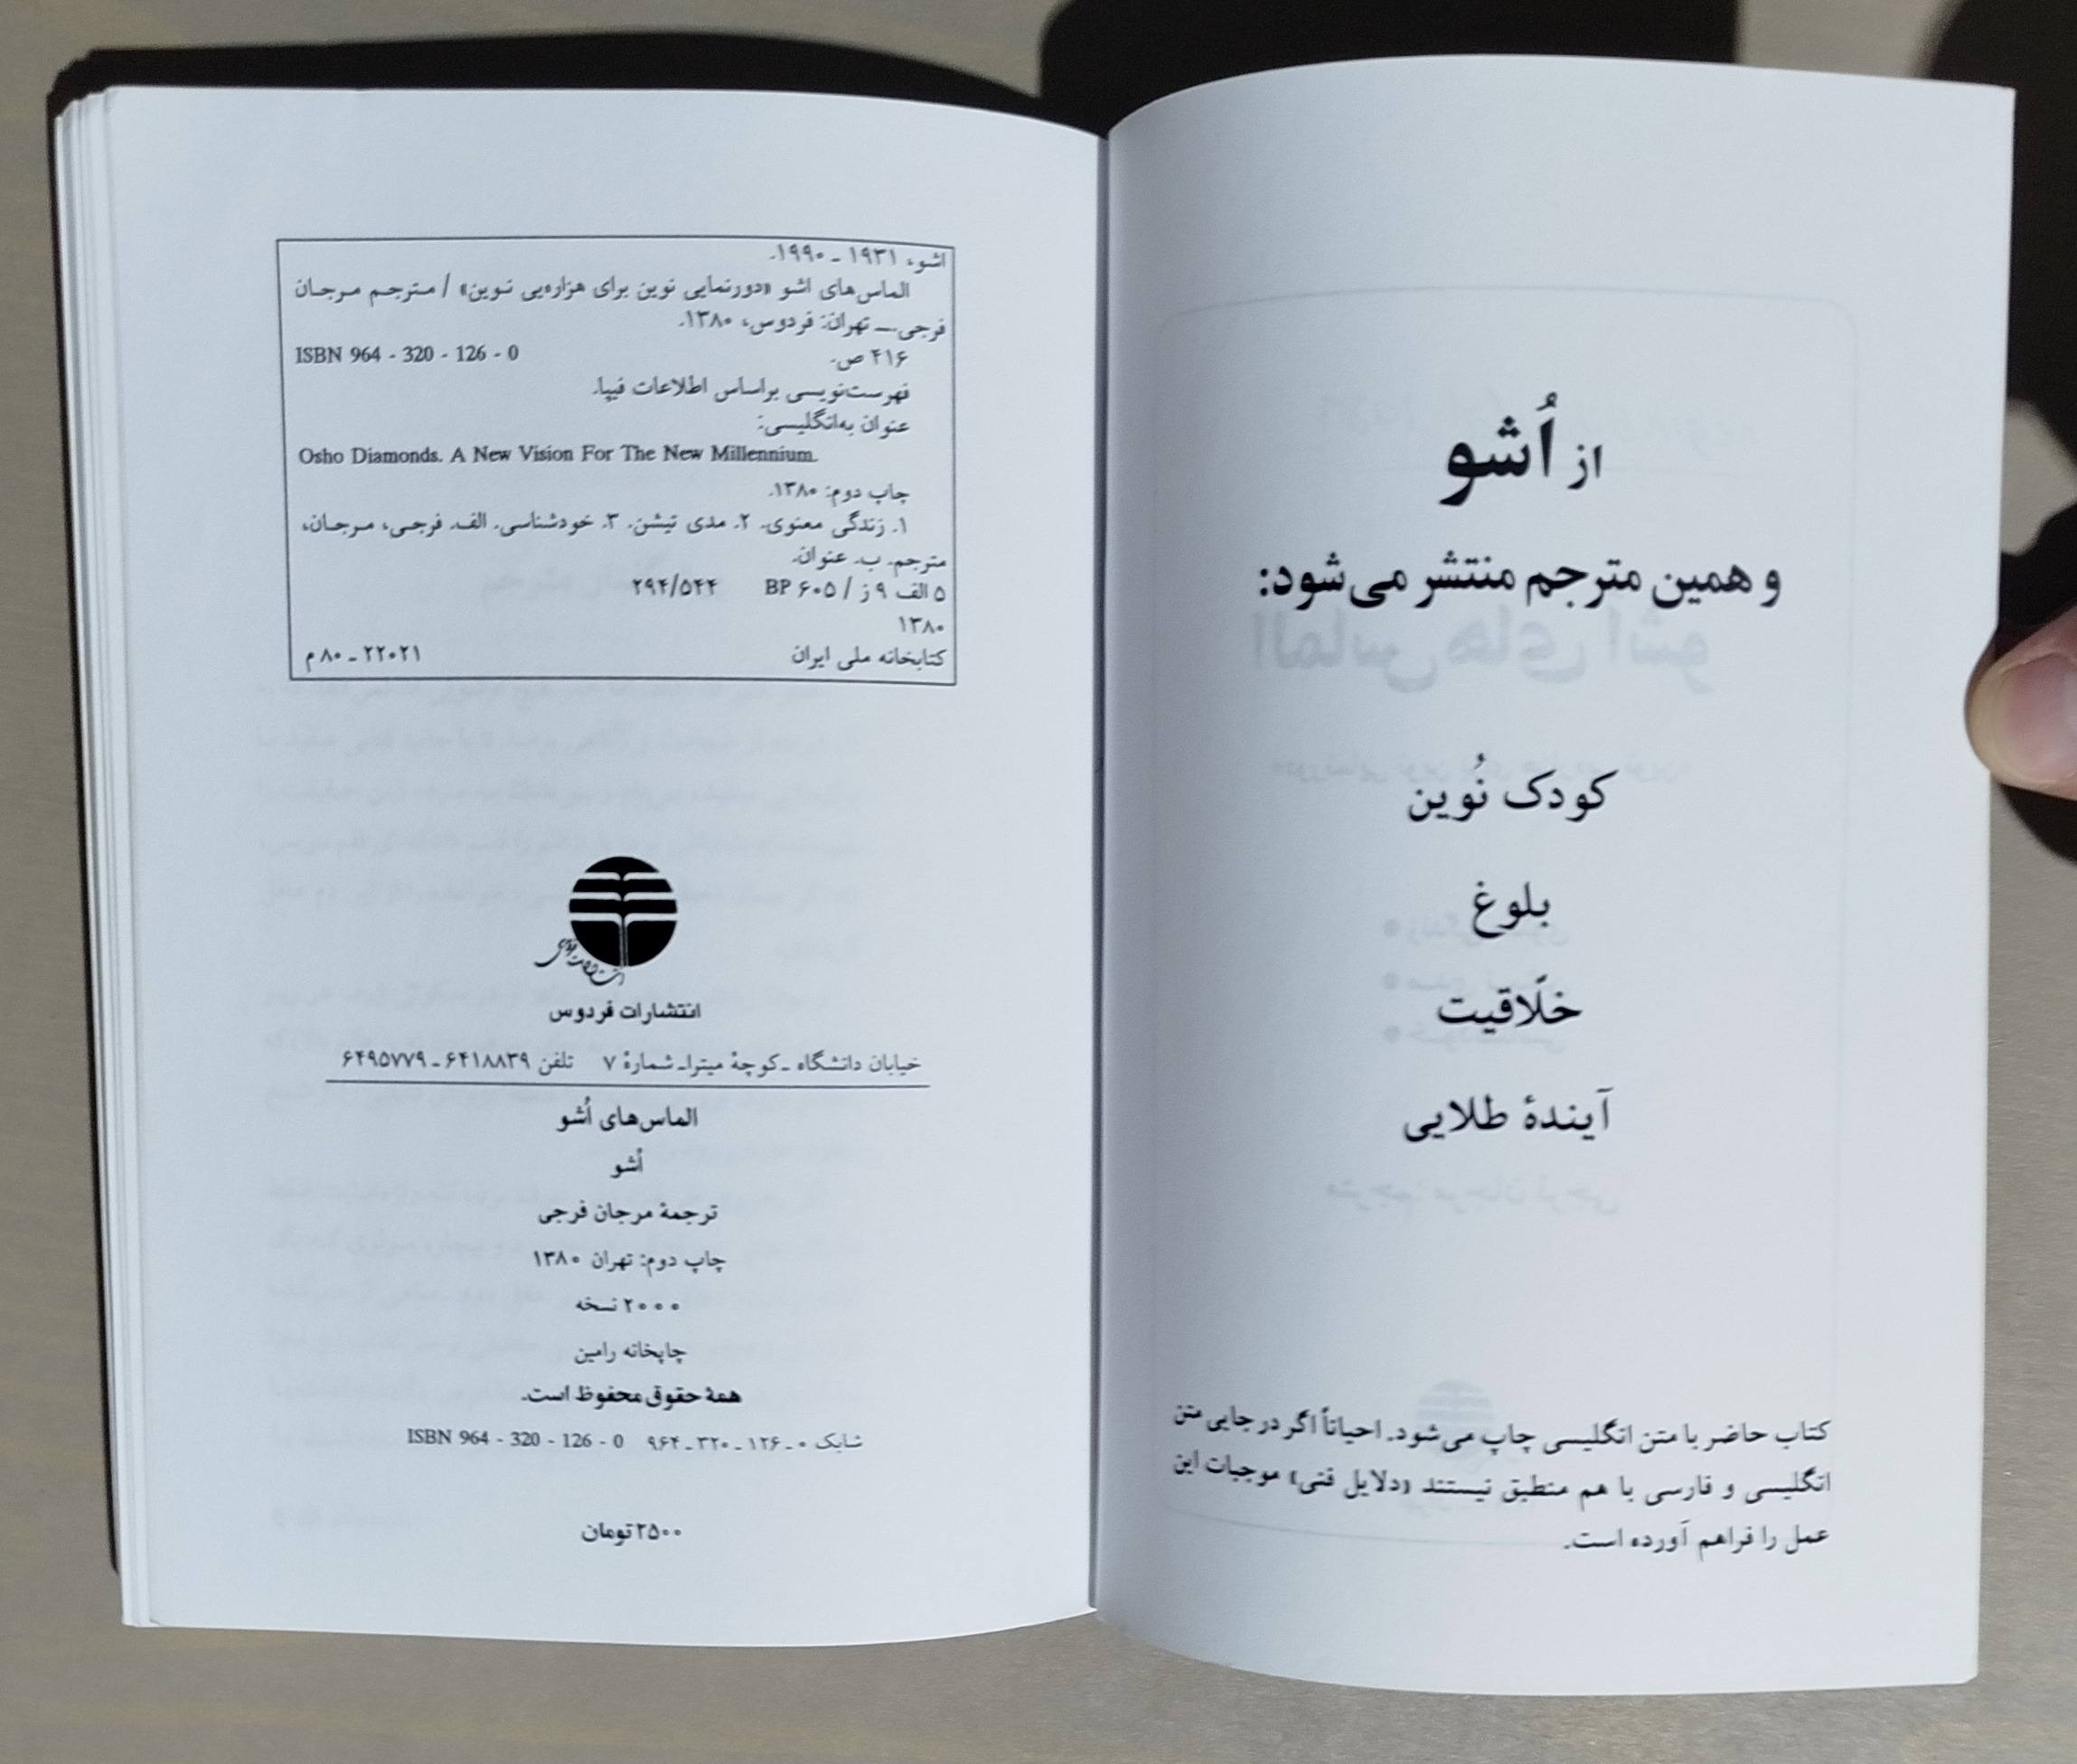 از اُشو
و همین مترجم منتشر می‌شود:
کودک نُوین
بلوغ
خلّاقیت
آیندهٔ طلایی
کتاب حاضر با متن انگلیسی چاپ می‌شود. احیاناً اگر در جایی متن
انگلیسی و فارسی با هم منطبق نیستند «دلایل فنی» موجبات این
عمل را فراهم آورده است.
اشو، ۱۹۳۱ ـ ۱۹۹۰.
الماس‌های اشو «دورنمایی نوین برای هزاره‌یی نوین» / مترجم مرجان
فرجی.ــ تهران: فردوس، ۱۳۸۰.
۴۱۶ ص. ISBN 964 - 320 - 126 - 0
فهرست‌نویسی براساس اطلاعات فیپا.
عنوان به‌انگلیسی:
Osho Diamonds. A New Vision For The New Millennium.
چاپ دوم: ۱۳۸۰.
۱. زندگی معنوی. ۲. مدی تیشن. ۳. خودشناسی. الف. فرجی، مرجان،
مترجم. ب. عنوان.
۵ الف ۹ ز / BP ۶۰۵ ۲۹۴/۵۴۴
۱۳۸۰
کتابخانه ملی ایران ۲۲۰۲۱ ـ ۸۰ م
انتشارات فردوس
خیابان دانشگاه ـ کوچهٔ میترا ـ شمارهٔ ۷ تلفن ۶۴۱۸۸۳۹ ـ ۶۴۹۵۷۷۹
الماس‌های اُشو
اُشو
ترجمهٔ مرجان فرجی
چاپ دوم: تهران ۱۳۸۰
۲۰۰۰ نسخه
چاپخانه رامین
همهٔ حقوق محفوظ است.
شابک ۰ ـ ۱۲۶ ـ ۳۲۰ ـ ۹۶۴ ISBN 964 - 320 - 126 - 0
۲۵۰۰ تومان